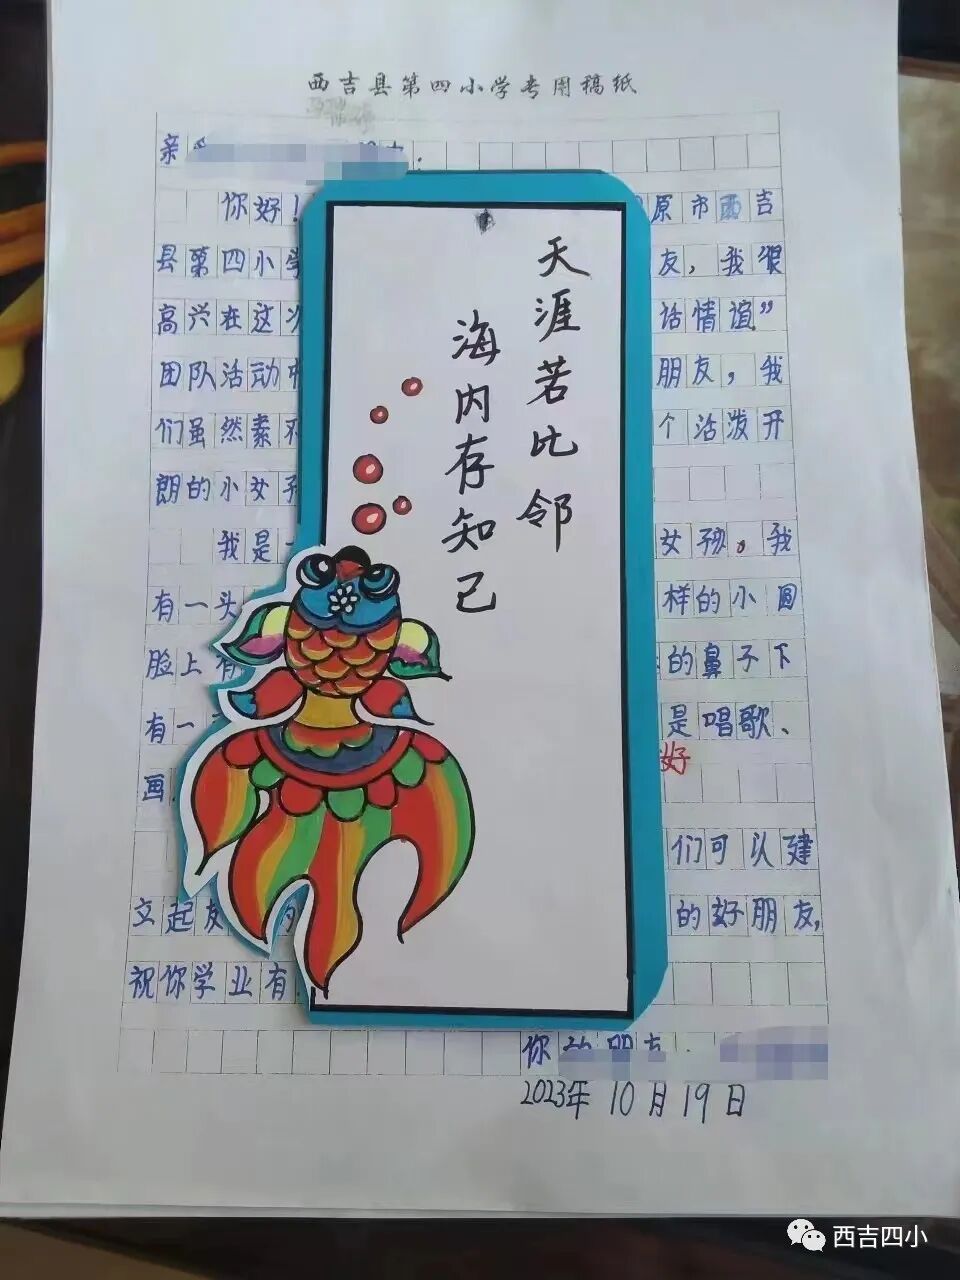 西吉县第四小学专用稿纸
亲
你好！
原市西吉
县第四小学
友，我很
高兴在这次
话情谊”
团队活动中
朋友，我
们虽然素不
个活泼开
朗的小女孩
我是一
女孩。我
有一头
样的小圆
脸上有
的鼻子下
有一
是唱歌、
好
画
们可以建
立起友
的好朋友，
祝你学业有
你的朋友：
2023年10月19日
天涯若比邻
海内存知己
西吉四小